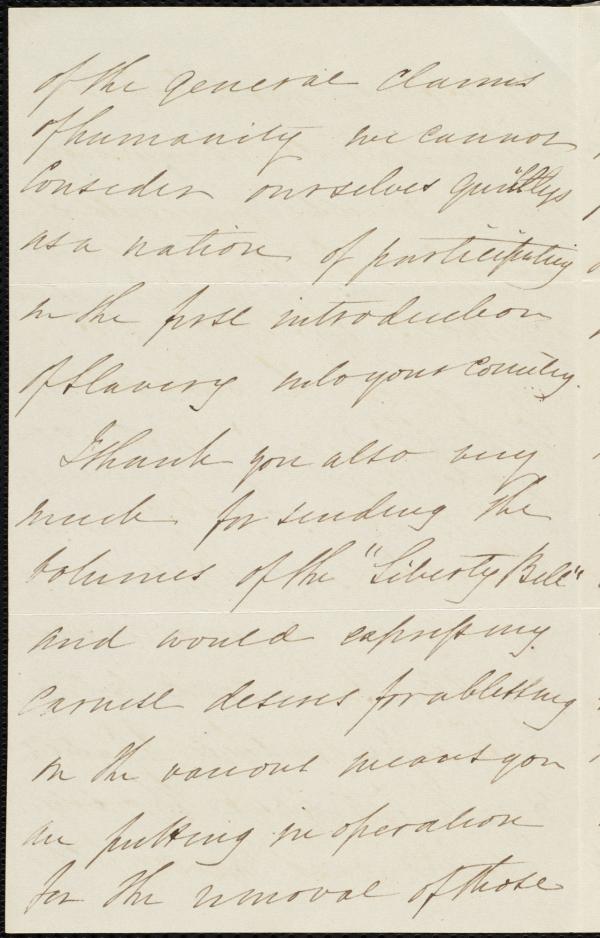 of the general claims
of humanity we cannot
consider ourselves guiltless
as a nation of participating
in the first introduction
of slavery into your country.
I thank you also very
much for sending the
volumes of the "Liberty Bell"
and would express my
earnest desires for a blessing
on the various means you
are putting in operation
for the removal of those